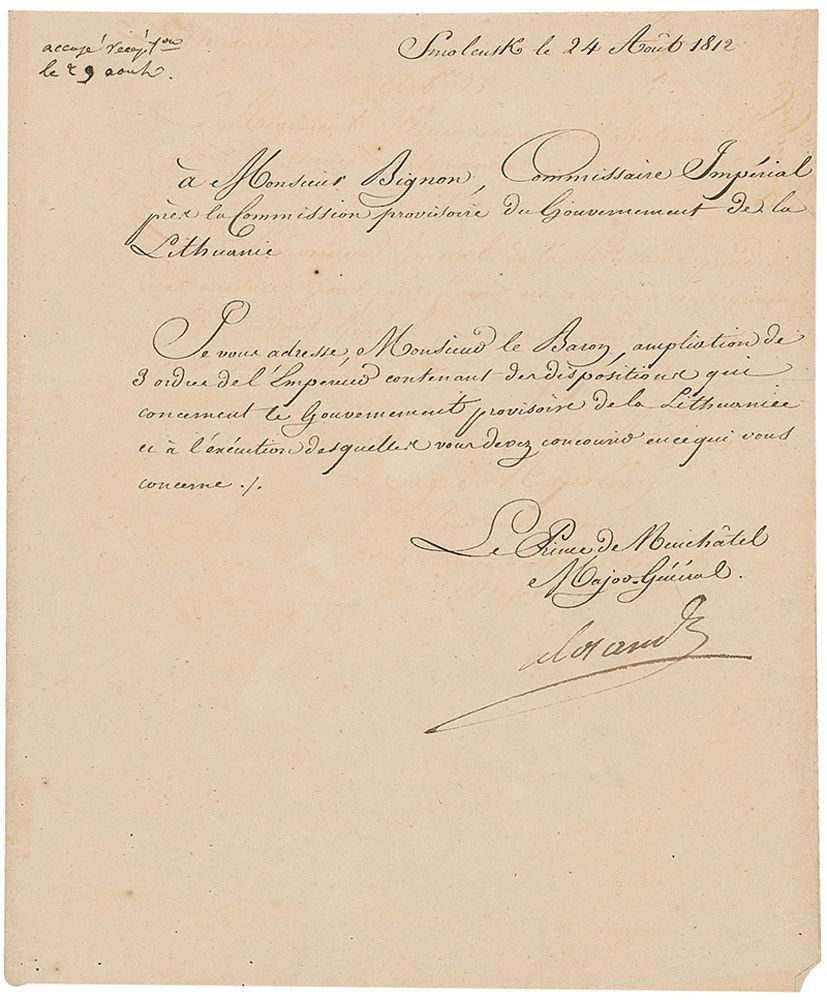 accusé récépt.on
le 29 août.
Smolensk le 24 Août 1812
à Monsieur Bignon, Commissaire Impérial
près la Commission provisoire du Gouvernement de la
Lithuanie
Je vous adresse, Monsieur le Baron, ampliation de
3 ordres de l'Empereur contenant des dispositions qui
concernent le Gouvernement provisoire de la Lithuanie
et à l'exécution desquelles vous devez concourir en ce qui vous
concerne ./.
Le Prince de Neuchâtel
Major-Général.
Alexandre